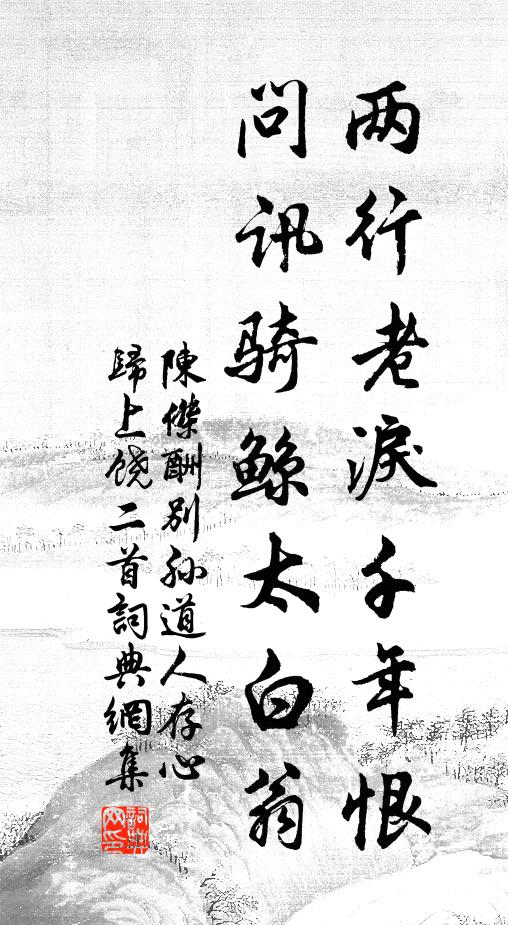 两行老淚千年恨
问讯骑鲸太白翁
陳傑酬别孙道人存心
歸上饶二首詞典網集